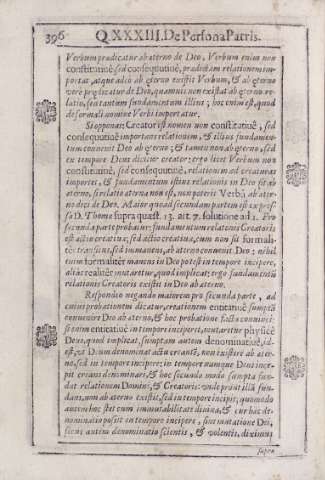 396 Q. XXXIII. De Persona Patris.
Verbum prædicatur ab æterno de Deo, Verbum enim non
constitutivè, sed consequutivè, prædictam relationem im-
portat, atque adeò ab æterno existit Verbum, & ab æterno
verè prædicatur de Deo, quamuis non existat ab æterno re-
latio, sed tantum fundamentum illius; hoc enim est, quod
de formali nomine Verbi importatur.
Si opponas: Creator est nomen non constitutivè, sed
consequutivè importans relationem, & illius fundamen-
tum conuenit Deo ab æterno; & tamen non ab æterno, sed
ex tempore Deus dicitur creator: ergo licet Verbum non
constitutivè, sed consequutivè, relationem ad creaturas
importet, & fundamentum istius relationis in Deo sit ab
æterno, si relatio æterna non est, non poterit Verbū, ab æter-
no dici de Deo. Maior quoad secundam partem est expres-
sa D. Thomæ supra quæst. 13. art. 7. solutione ad 3. Pro
secunda parte probatur: fundamentum relationis Creatoris
est actio creativa; sed actio creativa, cum non sit formali-
tèr transiens, sed immanens, ab æterno conuenit Deo; nihil
enim formalitèr manens in Deo potest in tempore incipere,
aliàs realitèr mutaretur, quod implicat; ergo fundamentū
relationis Creatoris existit in Deo ab æterno.
Respondeo negando maiorem pro secunda parte, ad
cuius probationem dicatur, creationem entitativè sumptā
conuenire Deo ab æterno, & hoc probatione facta conuinci:
si enim entitativè in tempore inciperet, mutaretur physicè
Deus, quod implicat, sumptam autem denominativè, id-
est, vt Deum denominat actu creantē, non existere ab æter-
no, sed in tempore incipere; in tempore namque Deus inci-
pit creans denominari, & hoc secundo modo sumpta fun-
dat relationem Domini, & Creatoris: vnde prout illā fun-
dans, non ab æterno existit, sed in tempore incipit; quomodo
autem hoc stet cum immutabilitate diuina, & cur hæc de-
nominatio possit in tempore incipere, sine mutatione Dei,
secus autem denominatio scientis, & volentis, diximus
supra